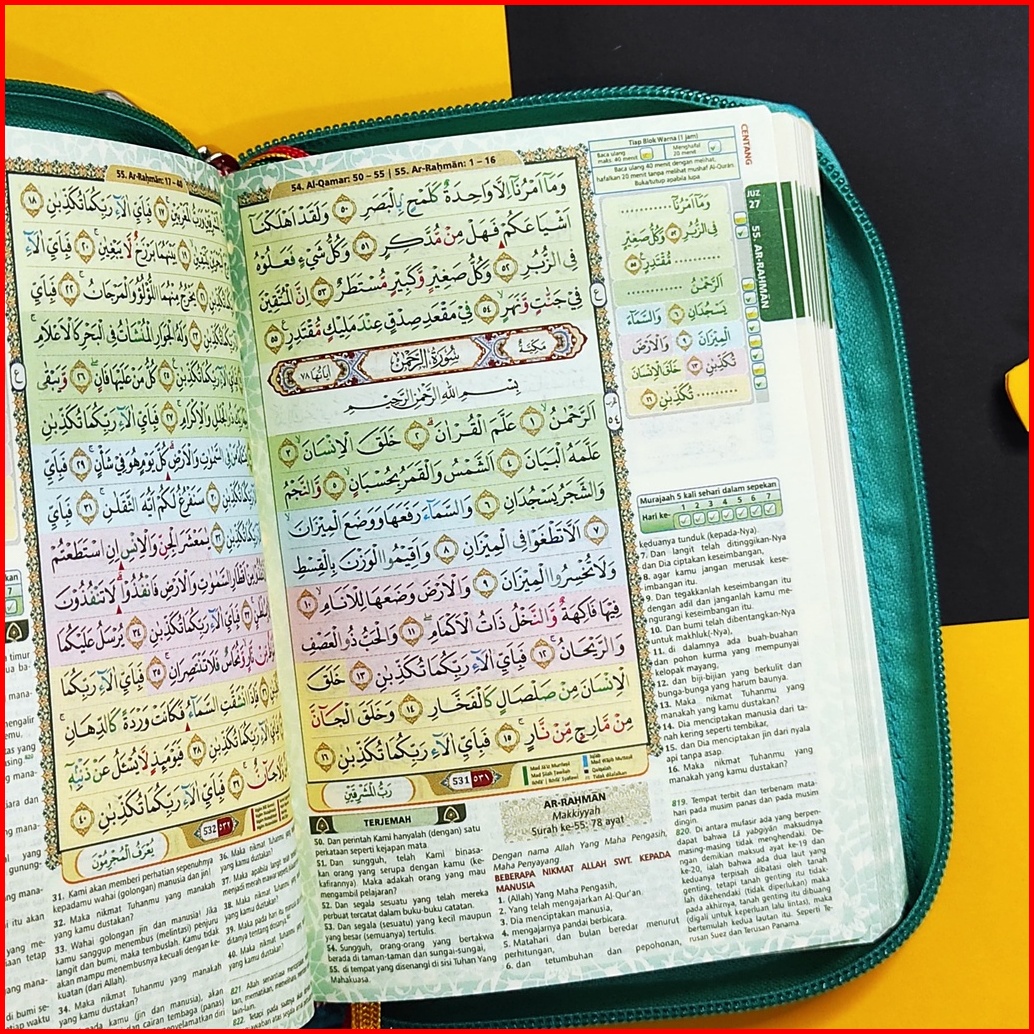 54. Al-Qamar: 50 – 55 | 55. Ar-Raḥmān: 1 – 16
وَمَآ اَمْرُنَآ اِلَّا وَاحِدَةٌ كَلَمْحٍ ۢبِالْبَصَرِ ٥٠ وَلَقَدْ اَهْلَكْنَآ
اَشْيَاعَكُمْ فَهَلْ مِنْ مُّدَّكِرٍ ٥١ وَكُلُّ شَيْءٍ فَعَلُوْهُ
فِى الزُّبُرِ ٥٢ وَكُلُّ صَغِيْرٍ وَّكَبِيْرٍ مُّسْتَطَرٌ ٥٣ اِنَّ الْمُتَّقِيْنَ
فِيْ جَنّٰتٍ وَّنَهَرٍۙ ٥٤ فِيْ مَقْعَدِ صِدْقٍ عِنْدَ مَلِيْكٍ مُّقْتَدِرٍ ࣖ ٥٥
مَكِّيَّة سُوْرَةُ الرَّحْمٰن اٰيَاتُهَا ٧٨
بِسْمِ اللّٰهِ الرَّحْمٰنِ الرَّحِيْمِ
اَلرَّحْمٰنُۙ ١ عَلَّمَ الْقُرْاٰنَۗ ٢ خَلَقَ الْاِنْسَانَۙ ٣
عَلَّمَهُ الْبَيَانَ ٤ اَلشَّمْسُ وَالْقَمَرُ بِحُسْبَانٍۙ ٥ وَّالنَّجْمُ
وَالشَّجَرُ يَسْجُدَانِ ٦ وَالسَّمَاۤءَ رَفَعَهَا وَوَضَعَ الْمِيْزَانَۙ
٧ اَلَّا تَطْغَوْا فِى الْمِيْزَانِ ٨ وَاَقِيْمُوا الْوَزْنَ بِالْقِسْطِ
وَلَا تُخْسِرُوا الْمِيْزَانَ ٩ وَالْاَرْضَ وَضَعَهَا لِلْاَنَامِۙ ١٠
فِيْهَا فَاكِهَةٌ وَّالنَّخْلُ ذَاتُ الْاَكْمَامِۖ ١١ وَالْحَبُّ ذُو الْعَصْفِ
وَالرَّيْحَانُۚ ١٢ فَبِاَيِّ اٰلَاۤءِ رَبِّكُمَا تُكَذِّبٰنِ ١٣ خَلَقَ
الْاِنْسَانَ مِنْ صَلْصَالٍ كَالْفَخَّارِ ١٤ وَخَلَقَ الْجَاۤنَّ
مِنْ مَّارِجٍ مِّنْ نَّارٍۚ ١٥ فَبِاَيِّ اٰلَاۤءِ رَبِّكُمَا تُكَذِّبٰنِ ١٦
531 ٥٣١
رَبُّ الْمَشْرِقَيْنِ
CENTANG
Tiap Blok Warna (1 jam)
Baca ulang maks. 40 menit
Menghafal 20 menit
Baca ulang 40 menit dengan melihat,
hafalkan 20 menit tanpa melihat mushaf Al-Qur'an.
Buka/tutup apabila lupa
وَمَآ اَمْرُنَآ ............
فِى الزُّبُرِ ٥٢ وَكُلُّ صَغِيْرٍ
............ مُّقْتَدِرٍ ٥٥
اَلرَّحْمٰنُ ............
يَسْجُدَانِ ٦ وَالسَّمَاۤءَ
الْمِيْزَانَ ٩ وَالْاَرْضَ
تُكَذِّبٰنِ ١٣ خَلَقَ الْاِنْسَانَ
............ تُكَذِّبٰنِ ١٦
JUZ
27
55. AR-RAḤMĀN
Murajaah 5 kali sehari dalam sepekan
Hari ke- 1 2 3 4 5 6 7
TERJEMAH
50. Dan perintah Kami hanyalah (dengan) satu
perkataan seperti kejapan mata
51. Dan sungguh, telah Kami binasa-
kan orang yang serupa dengan kamu (ke-
kafirannya) Maka adakah orang yang mau
mengambil pelajaran?
52. Dan segala sesuatu yang telah mereka
perbuat tercatat dalam buku-buku catatan.
53. Dan segala (sesuatu) yang kecil maupun
yang besar (semuanya) tertulis.
54. Sungguh, orang-orang yang bertakwa
berada di taman-taman dan sungai-sungai,
55. di tempat yang disenangi di sisi Tuhan Yang
Mahakuasa.
AR-RAḤMĀN
Makkiyyah
Surah ke-55: 78 ayat
Dengan nama Allah Yang Maha Pengasih,
Maha Penyayang.
BEBERAPA NIKMAT ALLAH SWT. KEPADA
MANUSIA
1. (Allah) Yang Maha Pengasih,
2. Yang telah mengajarkan Al-Qur'an.
3. Dia menciptakan manusia,
4. mengajarnya pandai berbicara.
5. Matahari dan bulan beredar menurut
perhitungan,
6. dan tetumbuhan dan pepohonan,
keduanya tunduk (kepada-Nya).
7. Dan langit telah ditinggikan-Nya
dan Dia ciptakan keseimbangan,
8. agar kamu jangan merusak kese-
imbangan itu.
9. Dan tegakkanlah keseimbangan itu
dengan adil dan janganlah kamu me-
ngurangi keseimbangan itu.
10. Dan bumi telah dibentangkan-Nya
untuk makhluk(-Nya),
11. di dalamnya ada buah-buahan
dan pohon kurma yang mempunyai
kelopak mayang,
12. dan biji-bijian yang berkulit dan
bunga-bunga yang harum baunya.
13. Maka nikmat Tuhanmu yang
manakah yang kamu dustakan?
14. Dia menciptakan manusia dari ta-
nah kering seperti tembikar,
15. dan Dia menciptakan jin dari nyala
api tanpa asap.
16. Maka nikmat Tuhanmu yang
manakah yang kamu dustakan?
819. Tempat terbit dan terbenam mata-
hari pada musim panas dan pada musim
dingin.
820. Di antara mufasir ada yang berpen-
dapat bahwa Lā yabgiyān maksudnya
masing-masing tidak menghendaki. De-
ngan demikian maksud ayat ke-19 dan
ke-20, ialah bahwa ada dua laut yang
keduanya terpisah dibatasi oleh tanah
genting, tetapi tanah genting itu tidak-
lah dikehendaki (tidak diperlukan) maka
pada akhirnya, tanah genting itu dibuang
(digali untuk keperluan lalu lintas), maka
bertemulah kedua lautan itu. Seperti Te-
rusan Suez dan Terusan Panama
55. Ar-Raḥmān: 17 – 40
١٧ فَبِاَيِّ اٰلَاۤءِ رَبِّكُمَا تُكَذِّبٰنِ ١٨
١٩ بَيْنَهُمَا بَرْزَخٌ لَّا يَبْغِيٰنِ ٢٠ فَبِاَيِّ اٰلَاۤءِ
٢١ يَخْرُجُ مِنْهُمَا اللُّؤْلُؤُ وَالْمَرْجَانُ ٢٢ فَبِاَيِّ
٢٣ وَلَهُ الْجَوَارِ الْمُنْشَاٰتُ فِى الْبَحْرِ كَالْاَعْلَامِ
٢٥ كُلُّ مَنْ عَلَيْهَا فَانٍ ٢٦ وَّيَبْقٰى
٢٧ فَبِاَيِّ اٰلَاۤءِ رَبِّكُمَا تُكَذِّبٰنِ
السَّمٰوٰتِ وَالْاَرْضِ كُلَّ يَوْمٍ هُوَ فِيْ شَأْنٍ ٢٩ فَبِاَيِّ
٣٠ سَنَفْرُغُ لَكُمْ اَيُّهَ الثَّقَلٰنِ ٣١ فَبِاَيِّ
٣٢ يٰمَعْشَرَ الْجِنِّ وَالْاِنْسِ اِنِ اسْتَطَعْتُمْ
اَقْطَارِ السَّمٰوٰتِ وَالْاَرْضِ فَانْفُذُوْا لَا تَنْفُذُوْنَ
٣٣ فَبِاَيِّ اٰلَاۤءِ رَبِّكُمَا تُكَذِّبٰنِ ٣٤ يُرْسَلُ عَلَيْكُمَا
وَّنُحَاسٌ فَلَا تَنْتَصِرَانِ ٣٥ فَبِاَيِّ اٰلَاۤءِ رَبِّكُمَا
فَاِذَا انْشَقَّتِ السَّمَاۤءُ فَكَانَتْ وَرْدَةً كَالدِّهَانِ
٣٨ فَيَوْمَىِٕذٍ لَّا يُسْـَٔلُ عَنْ ذَنْۢبِهٖٓ
جَاۤنٌّ ٣٩ فَبِاَيِّ اٰلَاۤءِ رَبِّكُمَا تُكَذِّبٰنِ ٤٠
532 ٥٣٢
يُعْرَفُ الْمُجْرِمُوْنَ
31. Kami akan memberi perhatian sepenuhnya
kepadamu wahai (golongan) manusia dan jin!
32. Maka nikmat Tuhanmu yang manakah
yang kamu dustakan?
33. Wahai golongan jin dan manusia! Jika
kamu sanggup menembus (melintasi) penjuru
langit dan bumi, maka tembuslah. Kamu tidak
akan mampu menembusnya kecuali dengan ke-
kuatan (dari Allah).
34. Maka nikmat Tuhanmu yang manakah
36. Maka nikmat Tuhanmu
yang kamu dustakan?
37. Maka apabila langit
38. Maka nikmat
yang kamu dustakan?
39. Maka pada hari itu
40. Maka nikmat
yang kamu dustakan?